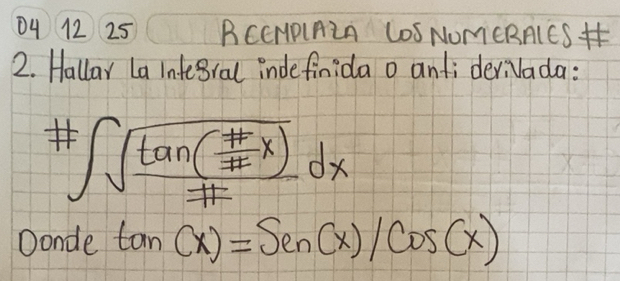 04 12 25 REEMPLAZA LOS NUMERALES #
2. Hallar la integral indefinida o anti derivada:
# ∫ √(tan(#/# x)) / # dx
Donde tan (x) = Sen(x) / Cos(x)